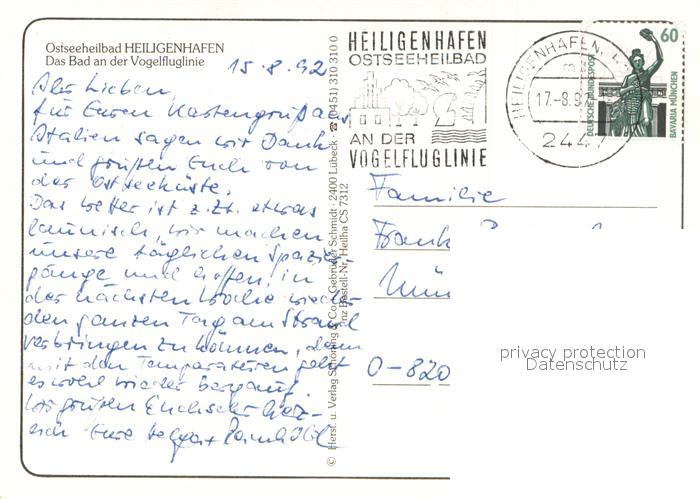 Ostseeheilbad HEILIGENHAFEN
Das Bad an der Vogelfluglinie
15.8.92
Ihr Lieben,
für Euren Kartengruß aus
Italien sagen wir Dank
und grüßen Euch von
der Ostseeküste.
Das Wetter ist z.Zt. etwas
launisch, wir machen
unsere täglichen Spazier-
gänge und hoffen, in
der nächsten Woche wieder
den ganzen Tag am Strand
verbringen zu können, denn
mit den Temperaturen geht
es wohl wieder bergauf.
Wir grüßen Euch sehr herz-
lich Eure Helga +
© Herst. u. Verlag Schöning & Co + Gebrüder Schmidt · 2400 Lübeck · ☎ (0451) 310 310 0
Bestell-Nr. Heilha CS 7312
HEILIGENHAFEN
OSTSEEHEILBAD
AN DER
VOGELFLUGLINIE
HEILIGENHAFEN
17.-8.92
2447
60
DEUTSCHE BUNDESPOST
BAVARIA MÜNCHEN
Familie
Frank
O-820
privacy protection
Datenschutz